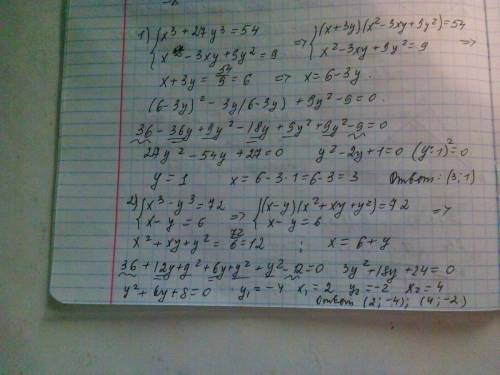 1) { x³ + 27y³ = 54 => { (x+3y)(x²-3xy+9y²) = 54
x² - 3xy + 9y² = 9 x² - 3xy + 9y² = 9 =>
x + 3y = 54/9 = 6 => x = 6-3y.
(6-3y)² - 3y(6-3y) + 9y² - 9 = 0.
36 - 36y + 9y² - 18y + 9y² + 9y² - 9 = 0
27y² - 54y + 27 = 0 y² - 2y + 1 = 0 (y-1)² = 0
y = 1 x = 6 - 3·1 = 6-3 = 3 Ответ: (3; 1)
2) { x³ - y³ = 72 => { (x-y)(x²+xy+y²) = 72 =>
x - y = 6 x - y = 6
x² + xy + y² = 72/6 = 12 ; x = 6 + y
36 + 12y + y² + 6y + y² + y² - 12 = 0 3y² + 18y + 24 = 0
y² + 6y + 8 = 0 y₁ = -4 x₁ = 2 y₂ = -2 x₂ = 4
Ответ (2; -4); (4; -2)